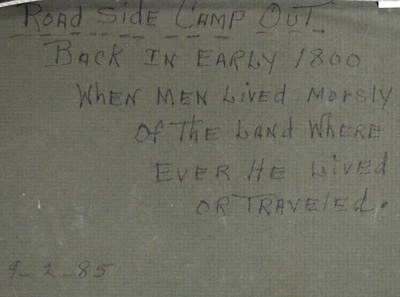 Road Side Camp Out
Back In Early 1800
When Men Lived Morsly
Of The Land Where
Ever He Lived
Or Traveled.
9-2-85